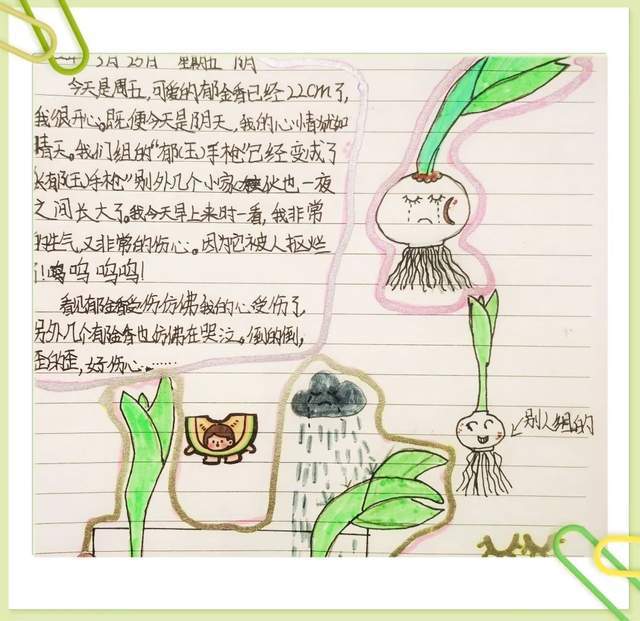 3月25日 星期五 阴
今天是周五,可爱的郁金香已经22cm了,
我很开心。既便今天是阴天,我的心情犹如
晴天。我们组的“郁(玉)手枪”已经变成了
长郁(玉)手枪”别外几个小家伙也一夜
之间长大了。我今天早上来时一看,我非常
的生气,又非常的伤心。因为它被人抠烂
了!呜呜呜呜!
看见郁金香受伤仿佛我的心受伤了,
另外几个郁金香也仿佛在哭泣。倒的倒,
歪的歪,好伤心……
别人组的